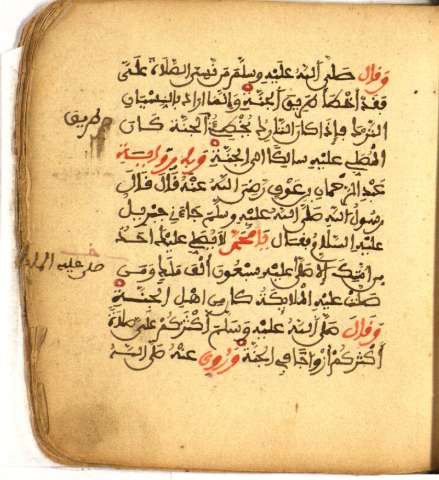 وقال صلى الله عليه وسلم من نسي الصلاة علي
فقد أخطأ طريق الجنة وإنما أراد بالنسيان
الترك فإذا كان التارك يخطئ الجنة كان
طريق
المصلي عليه سالكا إلى الجنة وفي رواية
عبد الرحمان بن عوف رضي الله عنه قال قال
رسول الله صلى الله عليه وسلم جاءني جبريل
عليه السلام وقال يا محمد لا يصلي عليك أحد
من أمتك إلا صلى عليه سبعون ألف ملك ومن
صلى عليه
صلت عليه الملائكة كان من أهل الجنة
وقال صلى الله عليه وسلم أكثركم علي صلاة
أكثركم أزواجا في الجنة وروي عنه صلى الله